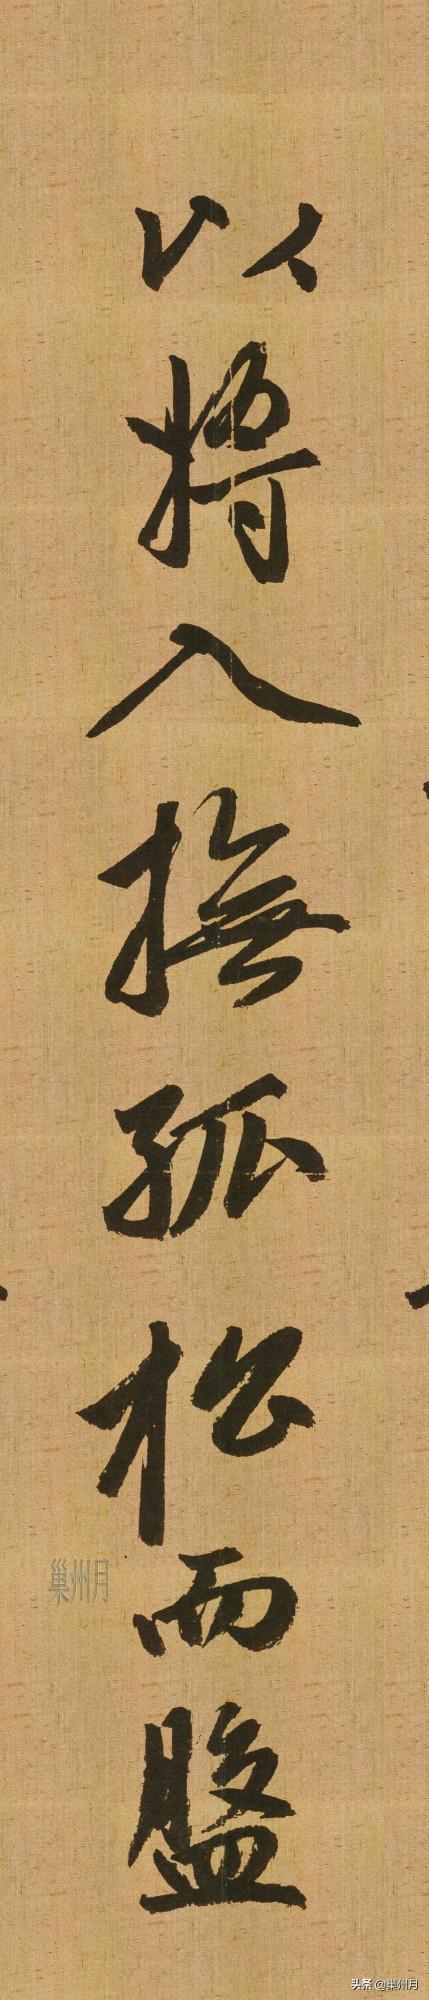 以將入撫孤松而盤
巢州月
头条 @巢州月